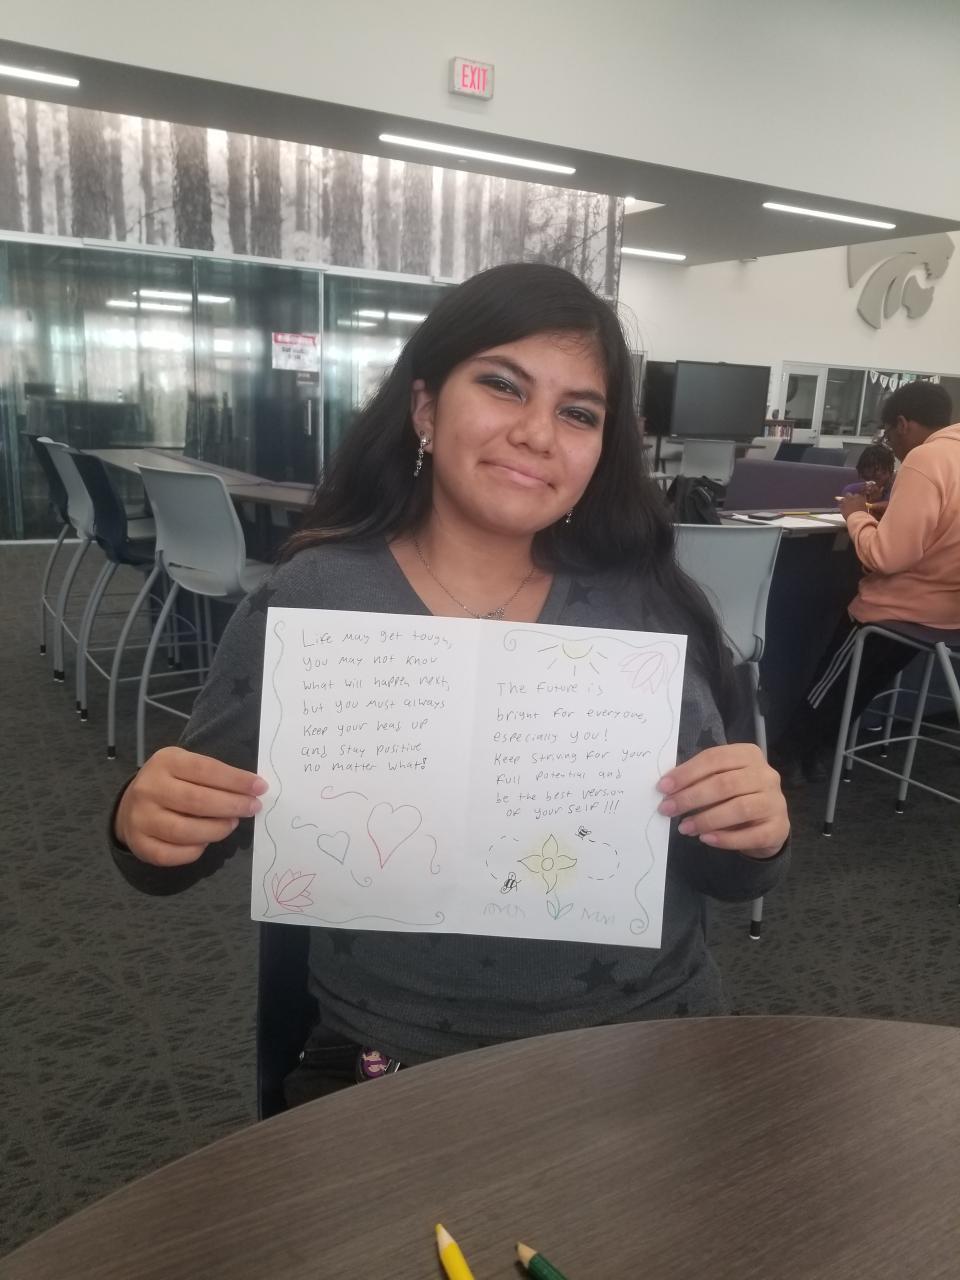 EXIT
Life may get tough,
you may not know
what will happen next,
but you must always
keep your head up
and stay positive
no matter what!
The future is
bright for everyone,
especially you!
Keep striving for your
full potential and
be the best version
of your self!!!